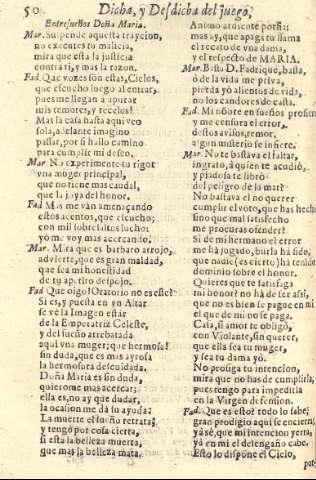 50 Dicha, y Desdicha del juego,
Entresueños Doña Maria.
Mar. Suspende aquesta trayçion,
no executes tu malicia,
mira que esta la justicia
contra ti, y mas la razon.
Fad. Que vozes son estas, Cielos,
que escucho luego al entrar,
pues me llegan a apurar
mis temores, y recelos!
Mas la casa hasta aqui veo
sola, adelante imagino
passar, por si hallo camino
para cumplir mi deseo.
Mar. No experimente tu rigor
vna muger principal,
que no tiene mas caudal,
que la joya del honor.
Fad. Mas me van amenaçando
estos acentos, que escucho;
con mil sobresaltos lucho:
yo me voy mas acercando.
Mar. Mira que es barbaro arrojo,
advierte, que es gran maldad,
que sea mi honestidad
de tu apetito despojo.
Fad. Que oigo! Oratorio no es este?
Si es, y puesta en vn Altar
se vè la Imagen estar
de la Emperatriz Celeste,
y del sueño arrebatada
aqui vna muger; que hermosa!
sin duda, que es mas ayrosa
la hermosura descuidada.
Doña Maria es sin duda,
quierome mas acercar;
ella es, no ay que dudar,
la ocasion me dà su ayuda:
La muerte el sueño retrata;
y tengo por cosa cierta,
si esta la belleza muerta,
que mas la belleza mata.
Animo ardiente porfia;
mas ay, que apaga tu llama
el recato de vna dama,
y el respeto de MARIA.
Mar. Basta D. Fadrique, basta,
ò de la vida me priva,
pierda yo alientos de vida,
no los candores de casta.
Fad. Mi nombre en sueños prosigue
y me censura el error,
destos avisos, temor,
algun misterio se infiere.
Mar. No te bastava el faltar,
ingrato, à quien te acudió,
y piadosa te librò
del peligro de la mar?
No bastava el no querer
cumplir el voto, que has hecho
sino que mal satisfecho
me procuras ofender?
Si de mi hermano el error
me ha jugado, burla ha sido,
que nadie (es cierto) ha tenido
dominio sobre el honor.
Quieres que te satisfaga
mi honor? no ha de ser assi,
que no es bien se pague en mi
el que de mi no se paga.
Casa, si amor te obligò,
con Violante, sin querer,
que ella sea tu muger,
y sea tu dama yò.
No prosiga tu intencion,
mira que no has de cumplirla,
pues tengo para impedirla
en la Virgen defension.
Fad. Que es esto? todo lo sabe;
gran prodigio aqui se encierra,
yà sè, que mi intencion yerra,
yà en mi el delengaño cabe.
Esto lo dispone el Cielo,